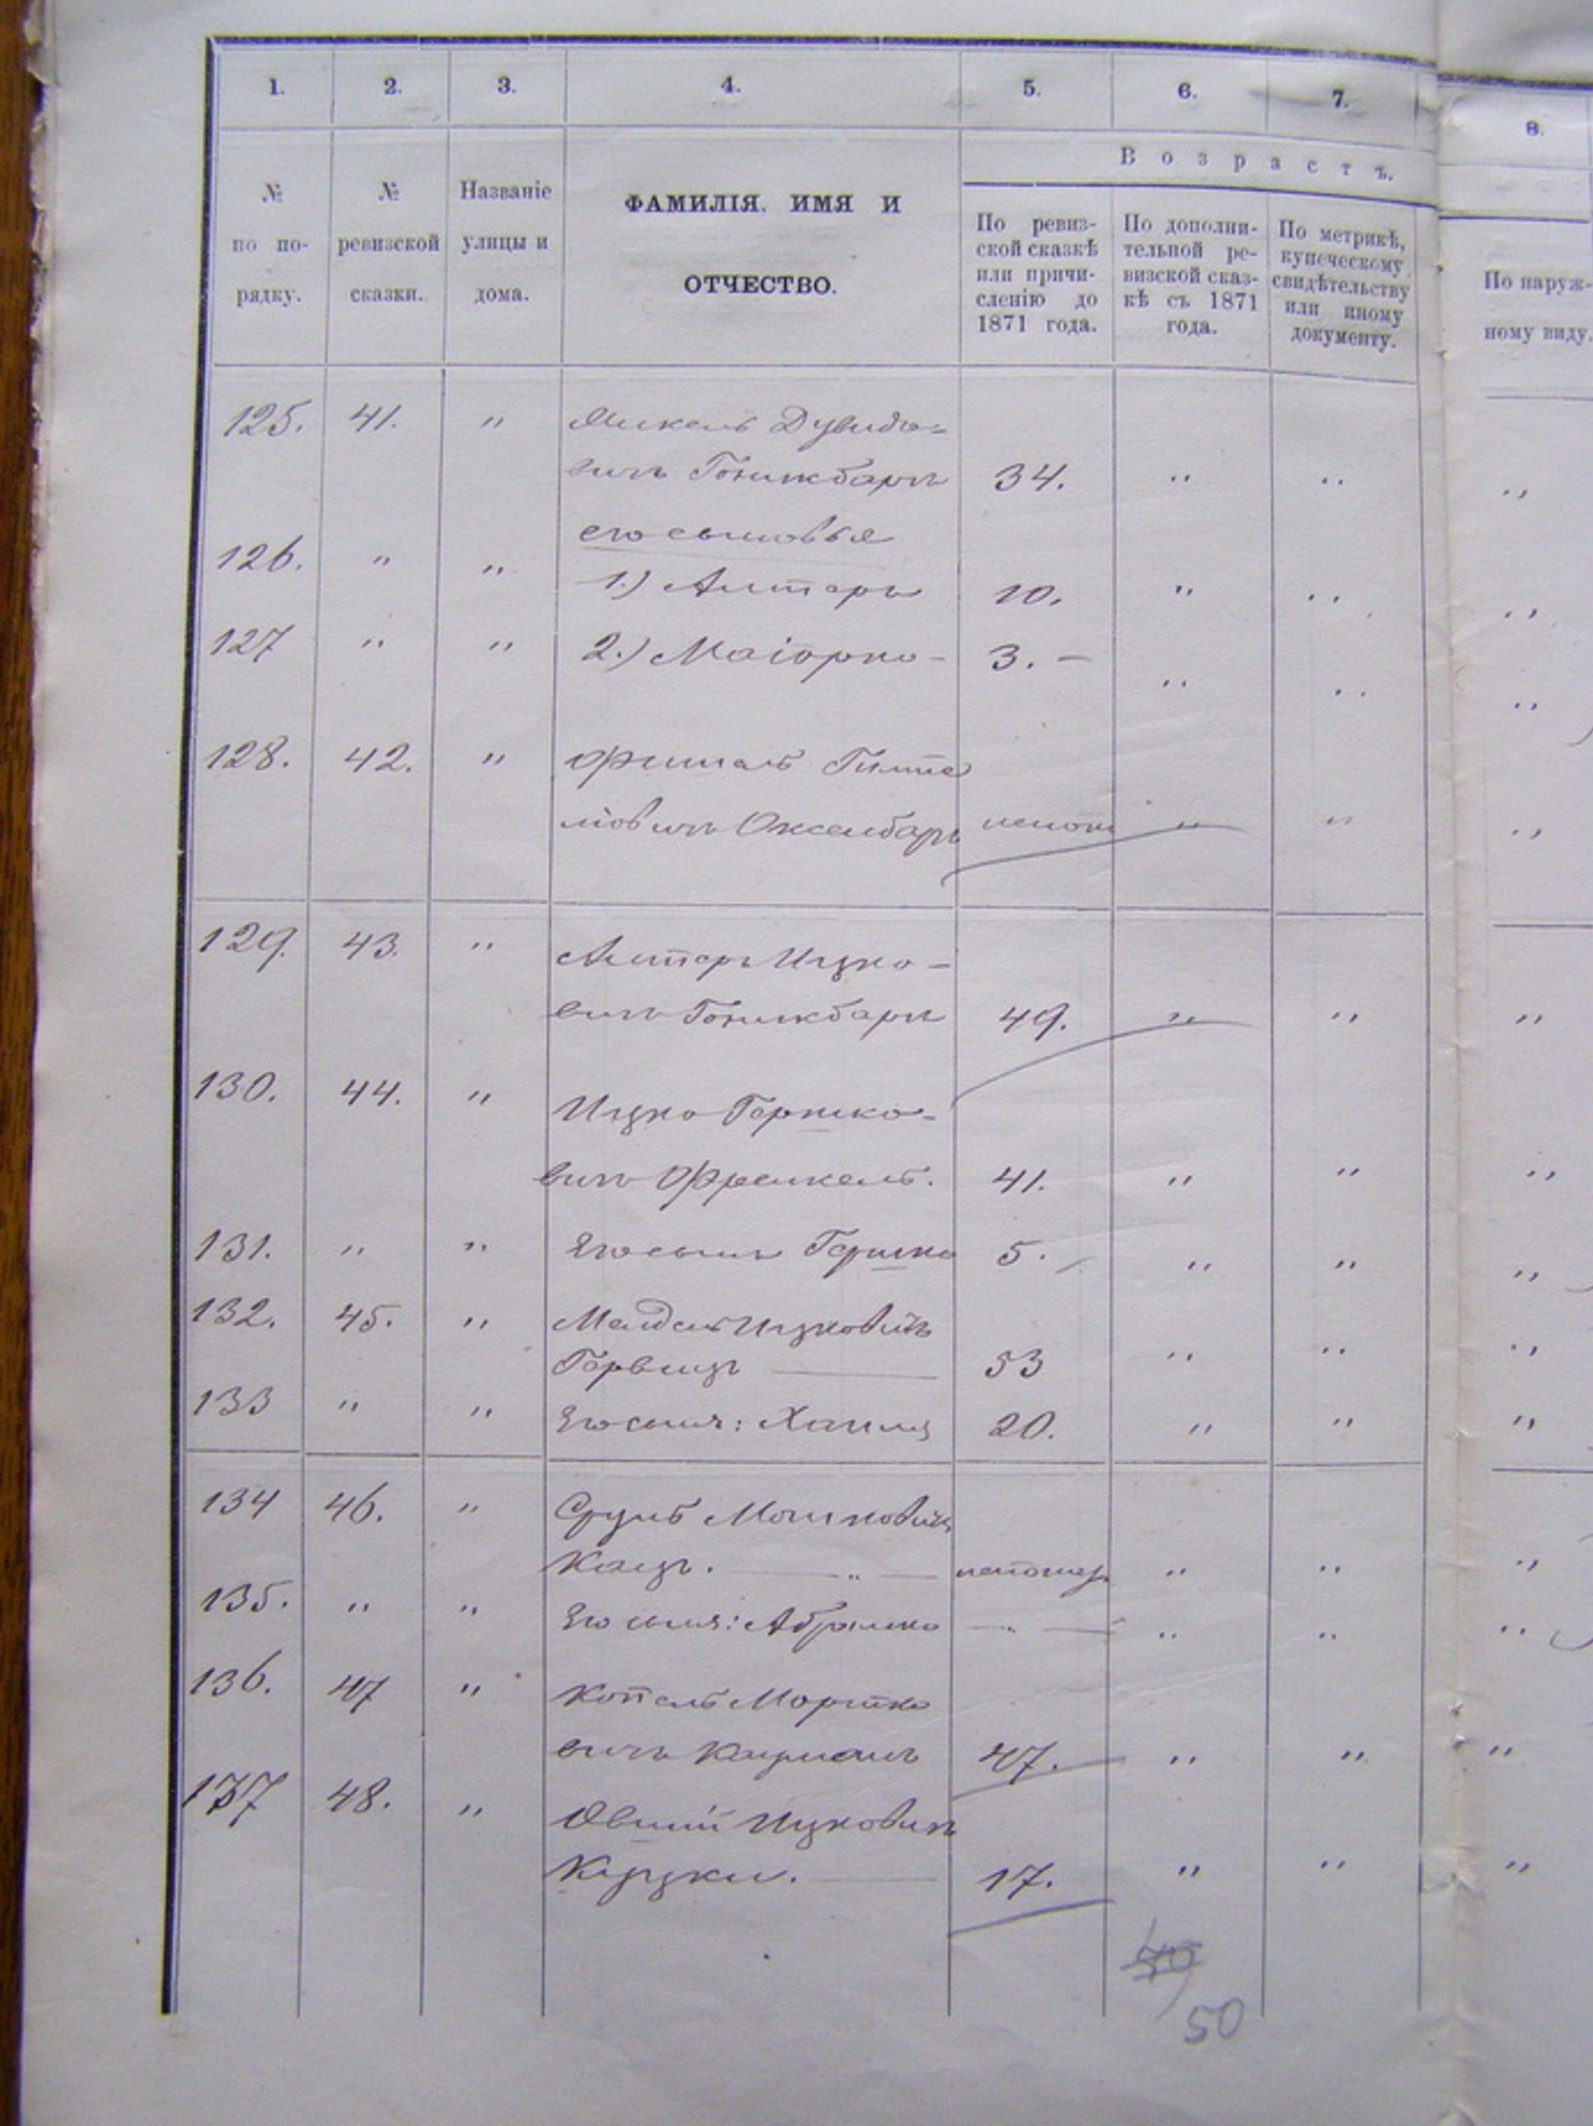 1. 2. 3. 4. 5. 6. 7. 8.
№ по по-рядку.
№ ревизской сказки.
Названіе улицы и дома.
ФАМИЛІЯ, ИМЯ И
ОТЧЕСТВО.
Возрастъ.
По ревиз-
ской сказкѣ
или причи-
сленію до
1871 года.
По дополни-
тельной ре-
визской сказ-
кѣ съ 1871
года.
По метрикѣ,
купеческому
свидѣтельству
или иному
документу.
По наруж-
ному виду.
125. 41. " Микель Дувидо=
вичъ Гоникбаръ 34. " " "
его сыновья
126. " " 1.) Алтеръ 10. " " "
127 " " 2.) Маіорко - 3. - " " "
128. 42. " Фишель
Оксенбаръ " " "
129. 43. " Алтеръ Ицко-
вичъ Гоникбаръ 49. " " "
130. 44. " Ицко Гершко-
вичъ Френкель. 41. " " "
131. " " Его сынъ Гершко 5. " " "
132. 45. " Мендель Ицковичъ
Горвицъ 53 " " "
133 " " Его сынъ: Хаимъ 20. " " "
134 46. " Сруль Мошковичъ
Кацъ. " " " "
135. " " Его сынъ: Абрамко " " " "
136. 47 " Копель Мортко
вичъ 47. " " "
137 48. " Овшій Ицковичъ
17. " " "
50